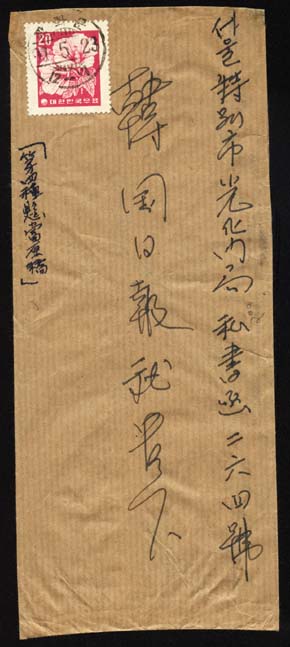 서울特別市光化門局 私書函 二六四號
韓国日報社 貴下
「第四種懸賞原稿」
20
대한민국우표
5.23